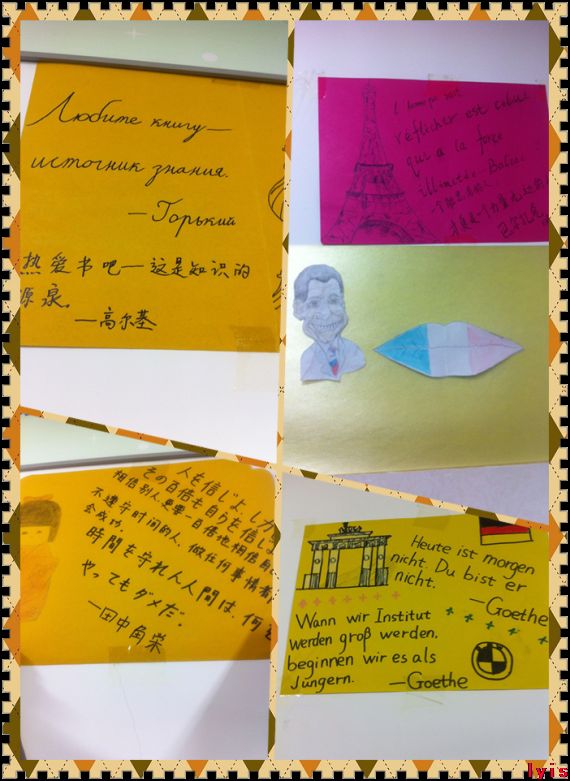 Любите книгу—
источник знания.
—Горький
热爱书吧—这是知识的
源泉。
—高尔基
L'homme
réflichir est celui
qui a la force
illimitée. Balzac
一个能思考的人,
才真是一个力量无边的
巴尔扎克
人を信じよ、しか
その百倍も自らを信じよ
相信别人,更要一百倍地相信自己
不遵守时间的人,做任何事情都
会成功。
時間を守れん人間は、何を
やってもダメだ。
—田中角栄
Heute ist morgen
nicht. Du bist er
nicht.
—Goethe
Wann wir Institut
werden groß werden,
beginnen wir es als
Jüngern.
—Goethe
lvis